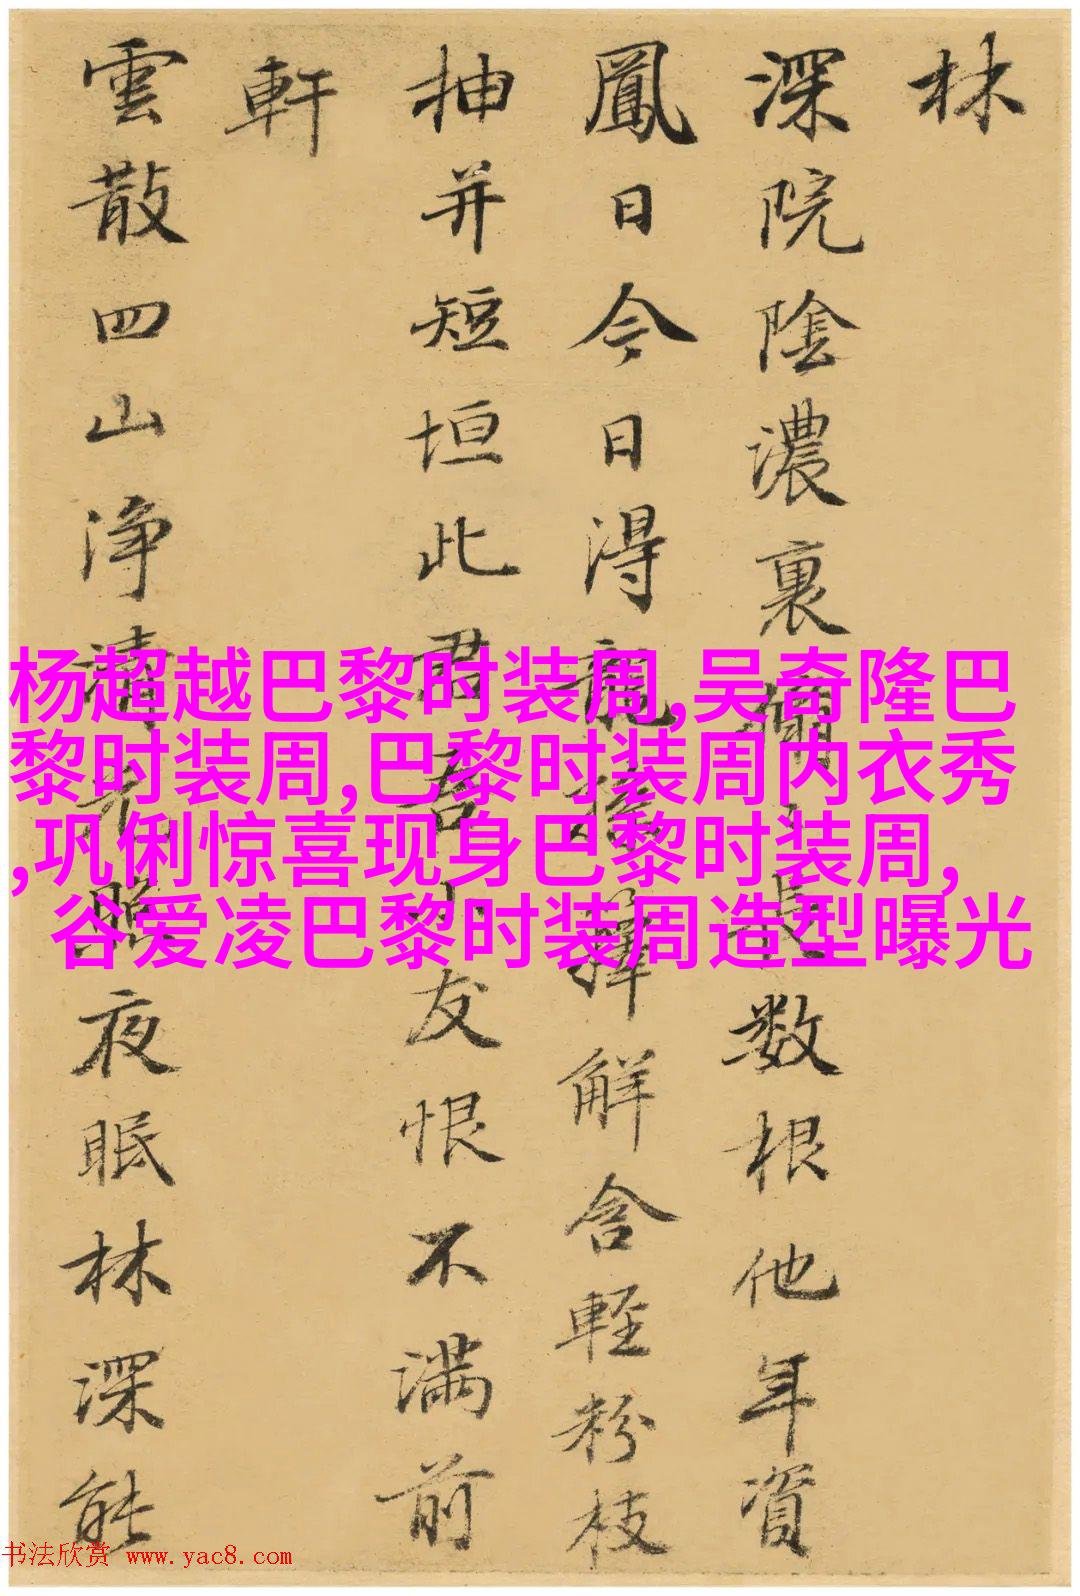 林
深院陰濃裏長数根他年資
鳳日今日得龍孫籜解含輕粉枝
抽并短垣此君吾小友恨不満前
軒
雲散四山浄清光照夜眠林深能
杨超越巴黎时装周,吴奇隆巴
黎时装周,巴黎时装周内衣秀
,巩俐惊喜现身巴黎时装周,
谷爱凌巴黎时装周造型曝光
书法欣赏 www.yac8.com